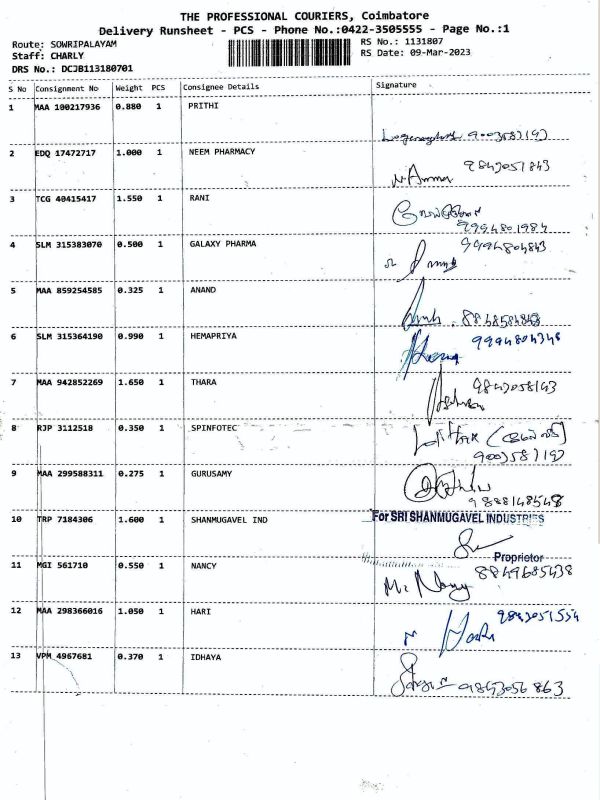 THE PROFESSIONAL COURIERS, Coimbatore
Delivery Runsheet - PCS - Phone No.:0422-3505555 - Page No.:1
Route: SOWRIPALAYAM RS No.: 1131807
Staff: CHARLY RS Date: 09-Mar-2023
DRS No.: DCJB113180701
S No Consignment No Weight PCS Consignee Details Signature
1 MAA 100217936 0.880 1 PRITHI
2 EDQ 17472717 1.000 1 NEEM PHARMACY
9843051843
N. Amma
3 TCG 40415417 1.550 1 RANI
9994801984
4 SLM 315383070 0.500 1 GALAXY PHARMA
9994804843
5 MAA 859254585 0.325 1 ANAND
6 SLM 315364190 0.990 1 HEMAPRIYA
9994804348
7 MAA 942852269 1.650 1 THARA
9843058143
8 RJP 3112518 0.350 1 SPINFOTEC
9 MAA 299588311 0.275 1 GURUSAMY
9888148548
10 TRP 7184306 1.600 1 SHANMUGAVEL IND For SRI SHANMUGAVEL INDUSTRIES
Proprietor
11 MGI 561710 0.550 1 NANCY 8849685438
12 MAA 298366016 1.050 1 HARI 9843051554
13 VPM 4967681 0.370 1 IDHAYA
9843056863